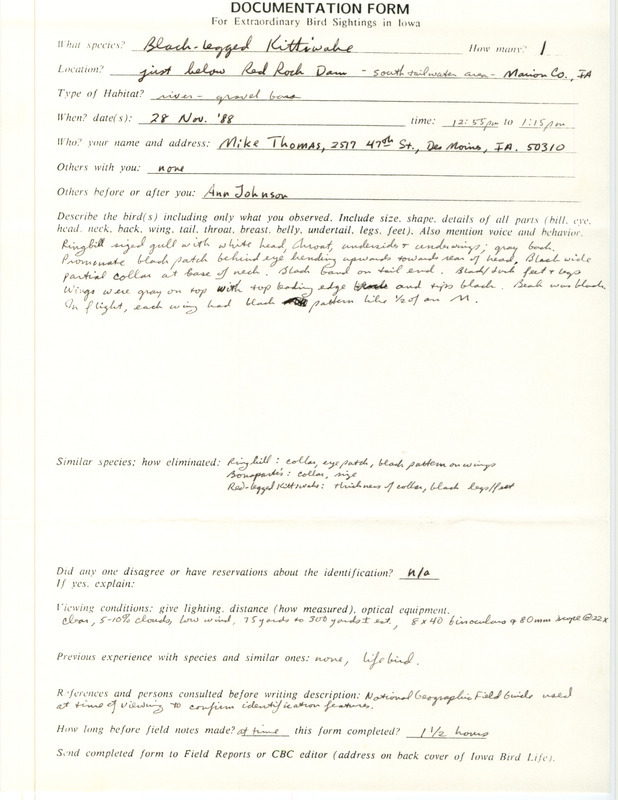 DOCUMENTATION FORM
For Extraordinary Bird Sightings in Iowa
What species? Black-legged Kittiwake How many? 1
Location? just below Red Rock Dam - south tailwater area - Marion Co., IA
Type of Habitat? river - gravel bars
When? date(s): 28 Nov. '88 time: 12:55pm to 1:15pm
Who? your name and address: Mike Thomas, 2517 47th St., Des Moines, IA. 50310
Others with you: none
Others before or after you: Ann Johnson
Describe the bird(s) including only what you observed. Include size, shape, details of all parts (bill, eye,
head, neck, back, wing, tail, throat, breast, belly, undertail, legs, feet). Also mention voice and behavior.
Ringbill sized gull with white head, throat, underside + underwings; gray back.
Promenate black patch behind eye bending upwards towards rear of head. Black wide
partial collar at base of neck. Black band on tail end. Black/dark feet + legs
Wings were gray on top with top leading edge and tips black. Beak was black.
In flight, each wing had black pattern like 1/2 of an M.
Similar species; how eliminated: Ringbill: collar, eye patch, black pattern on wings
Bonaparte's: collar, size
Red-legged Kittiwake: thickness of collar, black legs/feet
Did any one disagree or have reservations about the identification? n/a
If yes, explain:
Viewing conditions: give lighting, distance (how measured), optical equipment.
clear, 5-10% clouds, low wind, 75 yards to 300 yards ± est., 8x40 binoculars + 80mm scope @ 22x
Previous experience with species and similar ones: none, lifebird.
References and persons consulted before writing description: National Geographic Field Guide used
at time of viewing to confirm identification features.
How long before field notes made? at time this form completed? 1 1/2 hours
Send completed form to Field Reports or CBC editor (address on back cover of Iowa Bird Life).